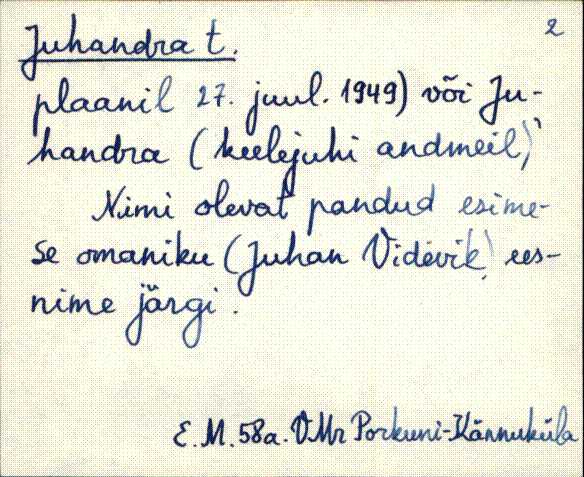 2
Juhandra t.
plaanil 27. juul. 1949) või Ju-
handra (keelejuhi andmeil)
Nimi olevat pandud esime-
se omaniku (Juhan Videvik) ees-
nime järgi.
E.M. 58a. VMr Porkuni-Kännuküla